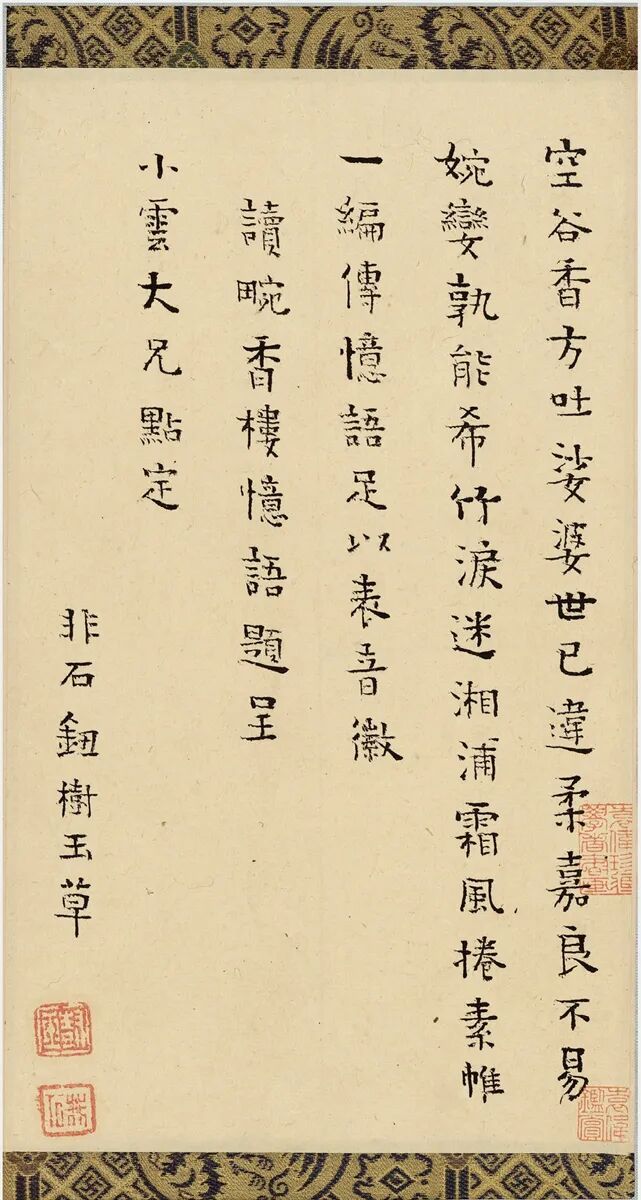 空谷香方吐娑婆世已違柔嘉良不易
婉孌孰能希竹淚迷湘浦霜風捲素帷
一編傳憶語足以表音徽
讀畹香樓憶語題呈
小雲大兄點定
非石鈕樹玉草